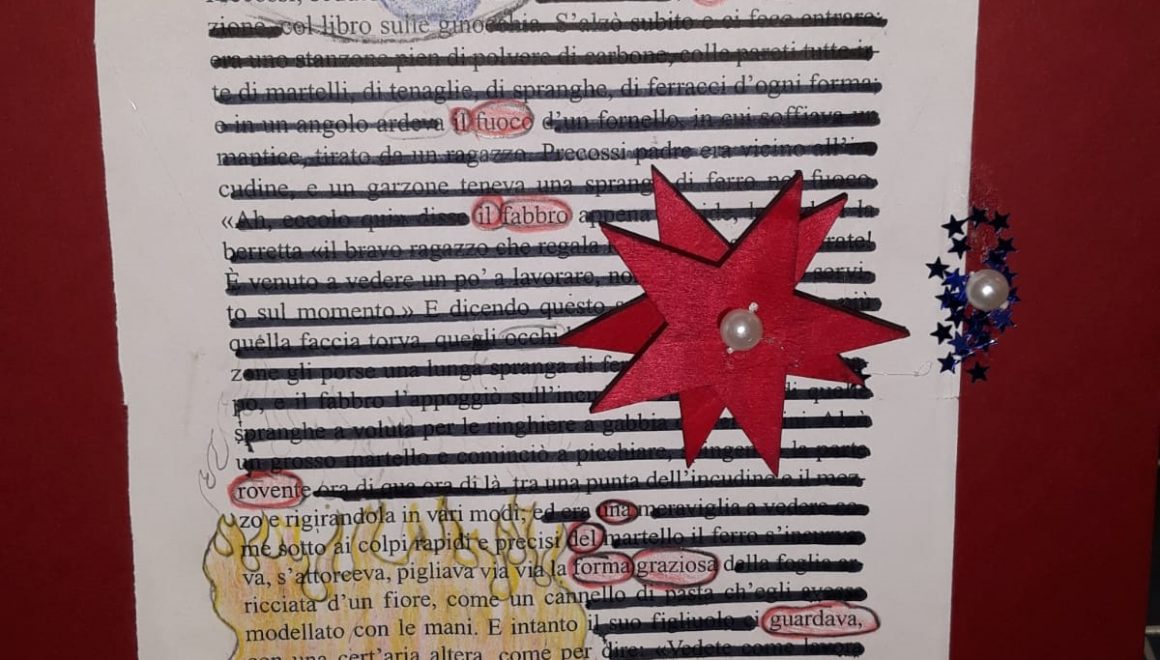 zione, col libro sulle ginocchia. S'alzò subito e ci fece entrare:
era uno stanzone pien di polvere di carbone, colle pareti tutte
te di martelli, di tenaglie, di spranghe, di ferracci d'ogni forma:
e in un angolo ardeva il fuoco d'un fornello, in cui soffiava un
mantice, tirato da un ragazzo. Precossi padre era vicino all'in-
cudine, e un garzone teneva una spranga di ferro nel fuoco.
«Ah, eccolo qui» disse il fabbro appena la
berretta «il bravo ragazzo che regala
È venuto a vedere un po' a lavorare, servi-
to sul momento.» E dicendo questo
quella faccia torva, quegli occhi
zone gli porse una lunga spranga di
po, e il fabbro l'appoggiò di quelle
spranghe a voluta per le ringhiere a gabbia Alzò
un grosso martello e cominciò a picchiare, la parte
rovente ora di qua ora di là, tra una punta dell'incudine e il mez-
zo e rigirandola in vari modi; ed era una meraviglia a vedere co-
me sotto ai colpi rapidi e precisi del martello il ferro s'incurva-
va, s'attorceva, pigliava via via la forma graziosa della foglia ar-
ricciata d'un fiore, come un cannello di pasta ch'egli avesse
modellato con le mani. E intanto il suo figliuolo ci guardava,
con una cert'aria altera, come per dire: «Vedete come lavora